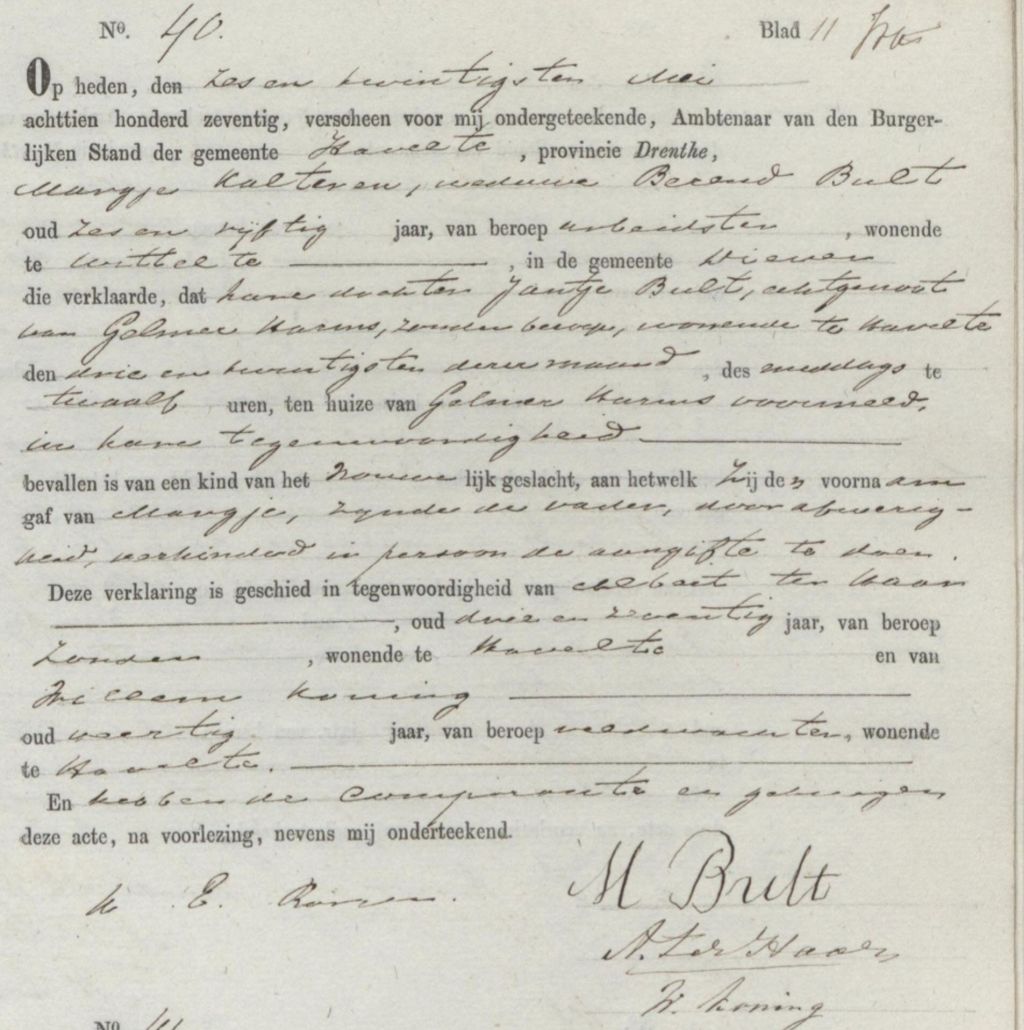 No. 40. Blad 11
Op heden, den zes en twintigsten Mei
achttien honderd zeventig, verscheen voor mij ondergeteekende, Ambtenaar van den Burger-
lijken Stand der gemeente Havelte, provincie Drenthe,
Margje Kalteren, weduwe Berend Bult
oud zes en vijftig jaar, van beroep arbeidster, wonende
te Wittelte, in de gemeente Diever
die verklaarde, dat hare dochter Jantje Bult, echtgenoot
van Gelmer Harms, zonder beroep, wonende te Havelte
den drie en twintigsten dezer maand, des middags te
twaalf uren, ten huize van Gelmer Harms voormeld,
in hare tegenwoordigheid
bevallen is van een kind van het vrouwelijk geslacht, aan hetwelk zij den voornaam
gaf van Margje, zynde de vader, door afwezig-
heid, verhinderd in persoon de aangifte te doen.
Deze verklaring is geschied in tegenwoordigheid van Albert ter Haar
, oud drie en zeventig jaar, van beroep
zonder, wonende te Havelte en van
Willem Koning
oud veertig jaar, van beroep veldwachter, wonende
te Havelte.
En hebben de comparante en getuigen
deze acte, na voorlezing, nevens mij onderteekend.
E. M Bult
A. ter Haar
W. Koning
No